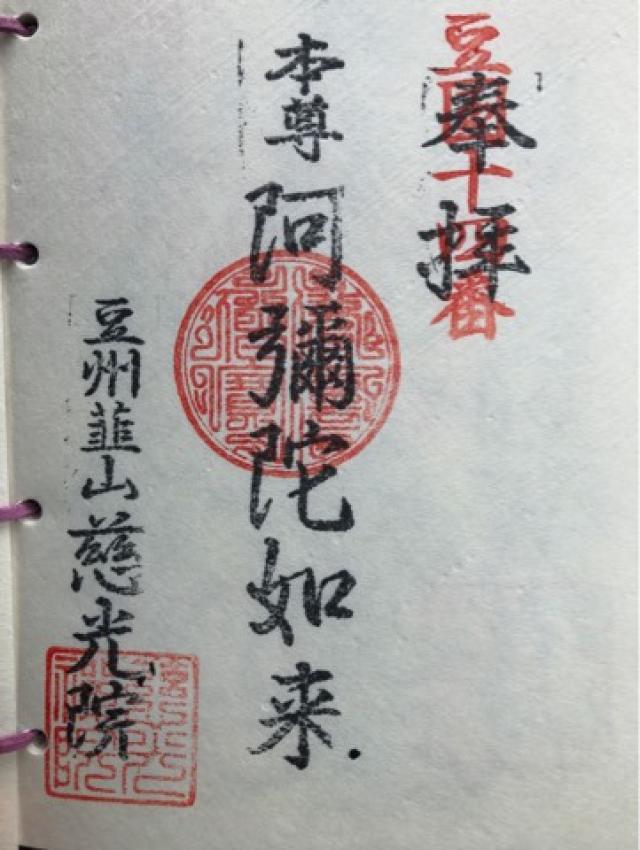 豆国十四番
奉拝
本尊 阿彌陀如来
豆州韮山慈光院